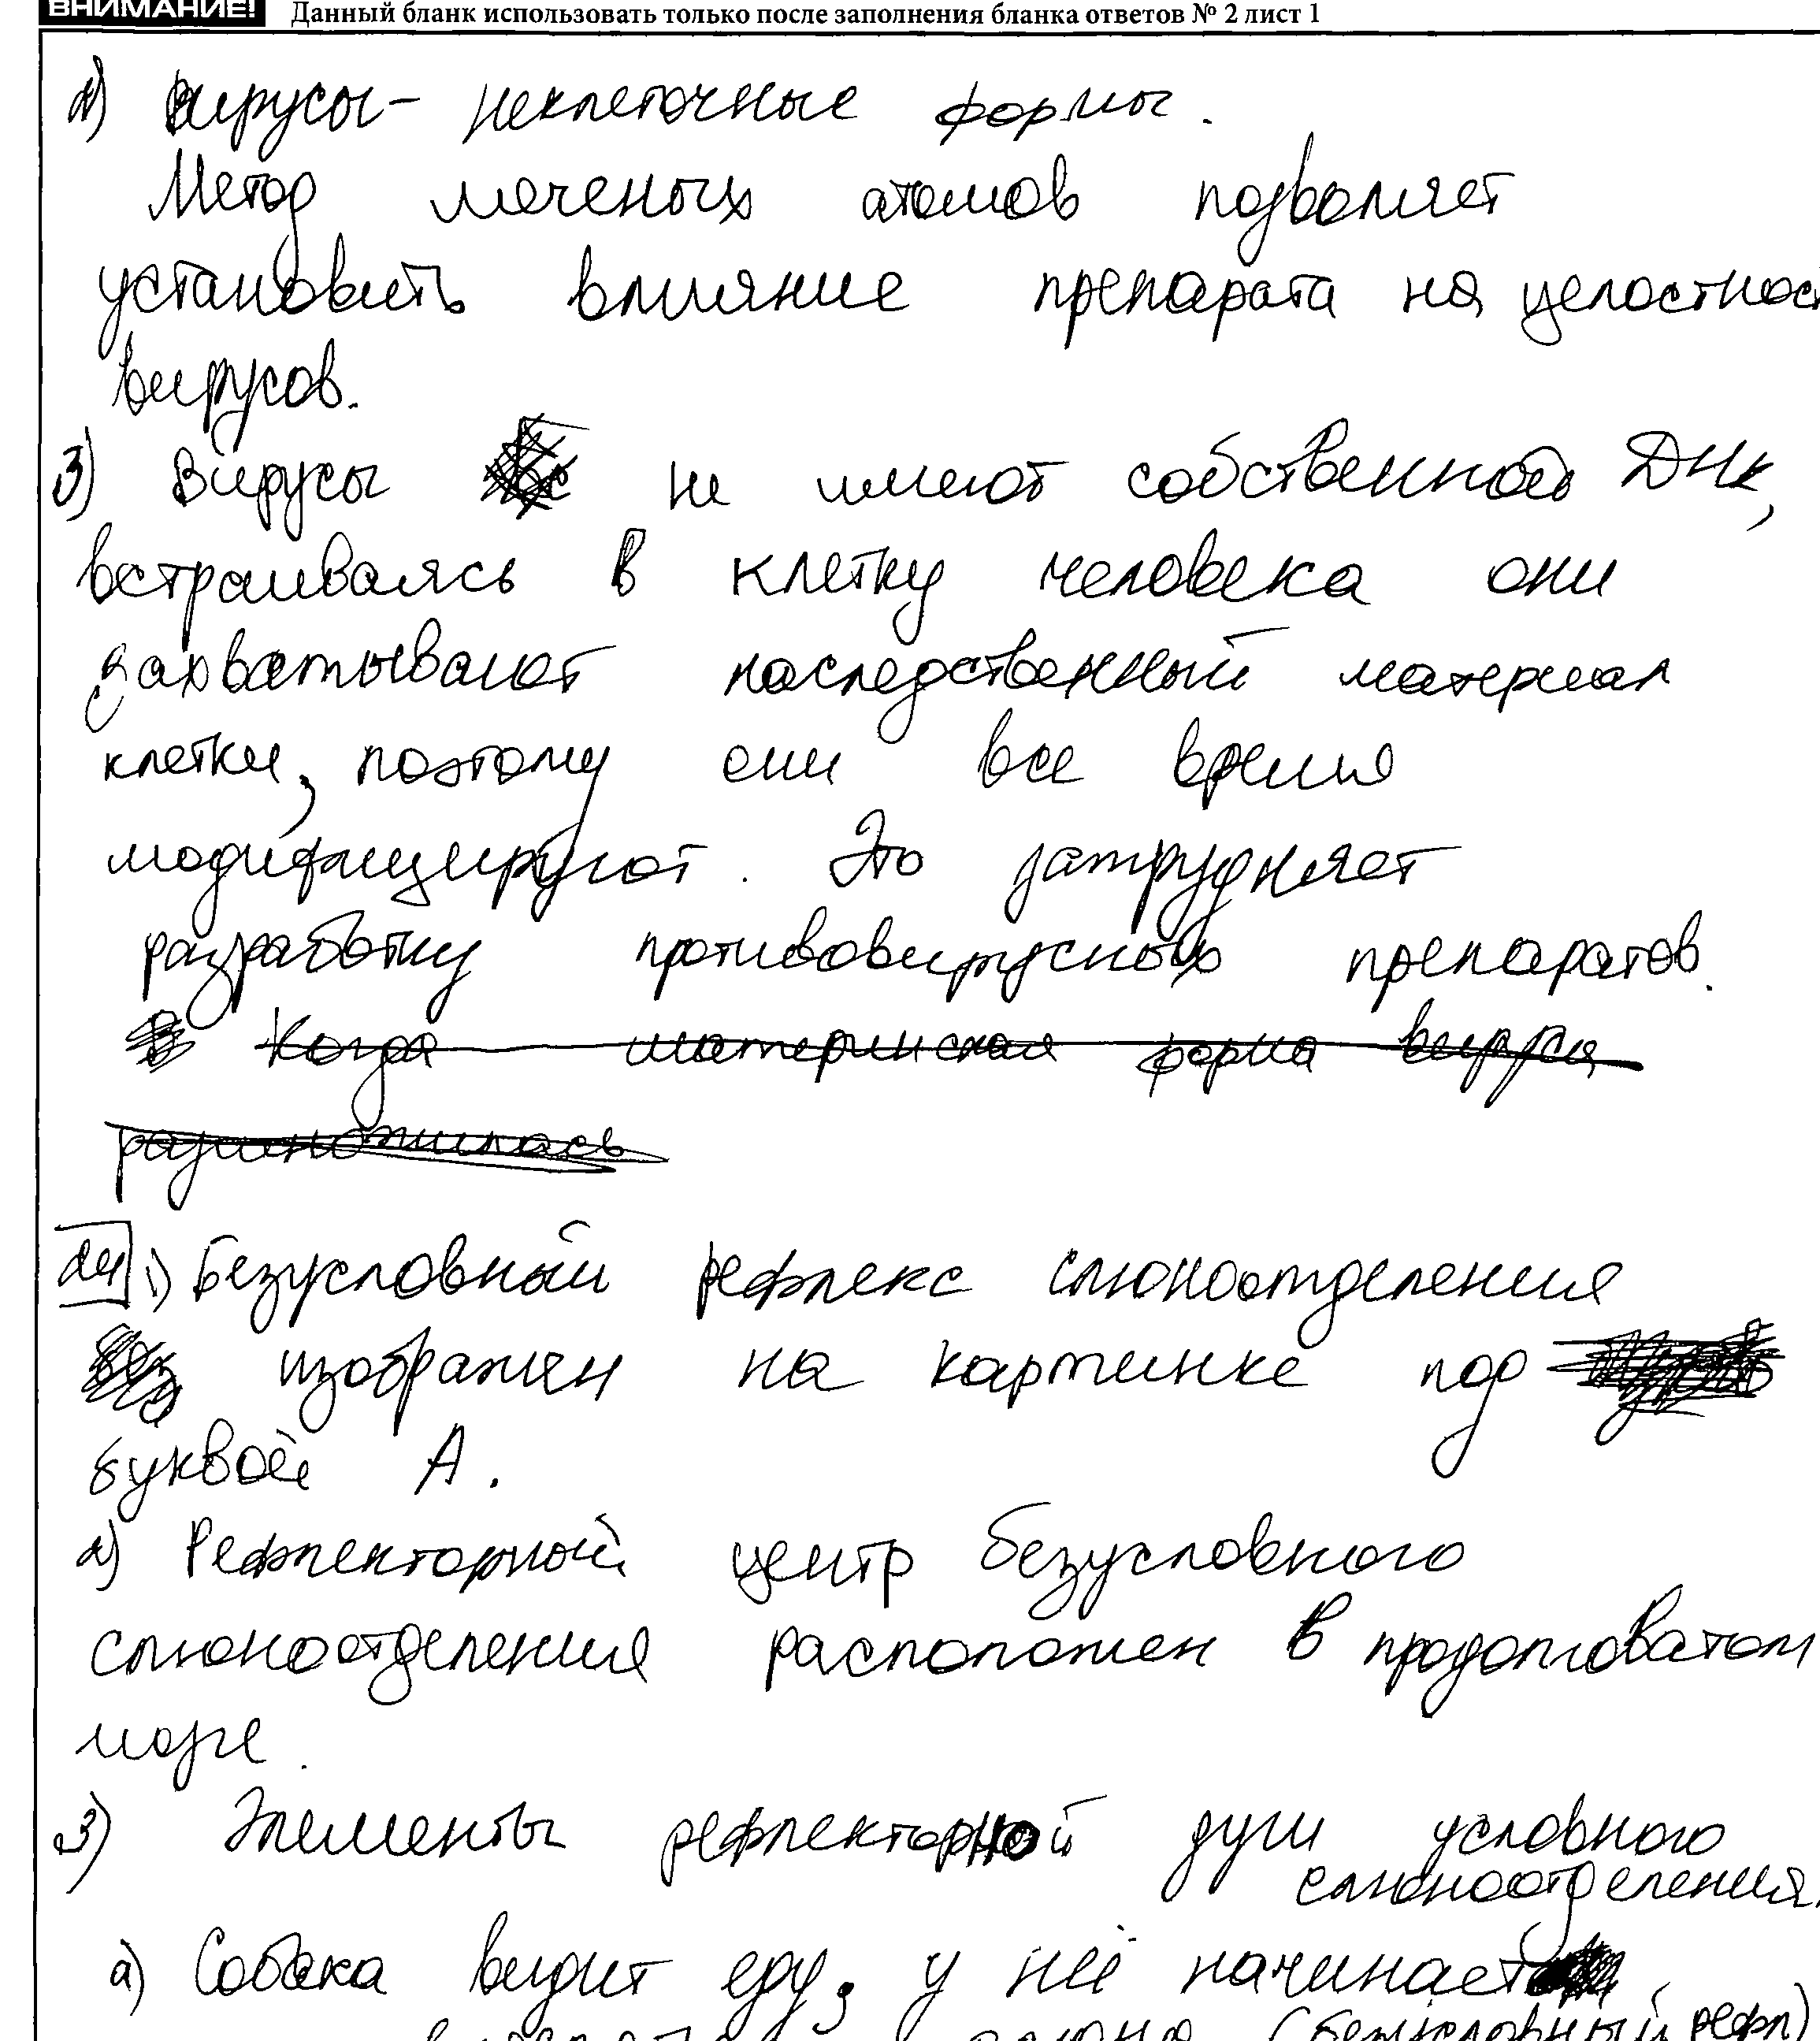 ВНИМАНИЕ! Данный бланк использовать только после заполнения бланка ответов № 2 лист 1
2) Вирусы - неклеточные формы.
Метод меченых атомов позволяет
установить влияние препарата на целостност
вирусов.
3) Вирусы не имеют собственной ДНК,
встраиваясь в клетку человека они
захватывают наследственный материал
клетки, поэтому они все время
модифицируют. Это затрудняет
разработку противовирусных препаратов.
Когда материнская форма вируса
размножилась
24 1) Безусловный рефлекс слюноотделения
изображен на картинке под
буквой А.
2) Рефлекторный центр безусловного
слюноотделения расположен в продолговатом
мозге.
3) Элементы рефлекторной дуги условного
слюноотделения.
а) Собака видит еду, у неё начинает
слюна (безусловный рефл)